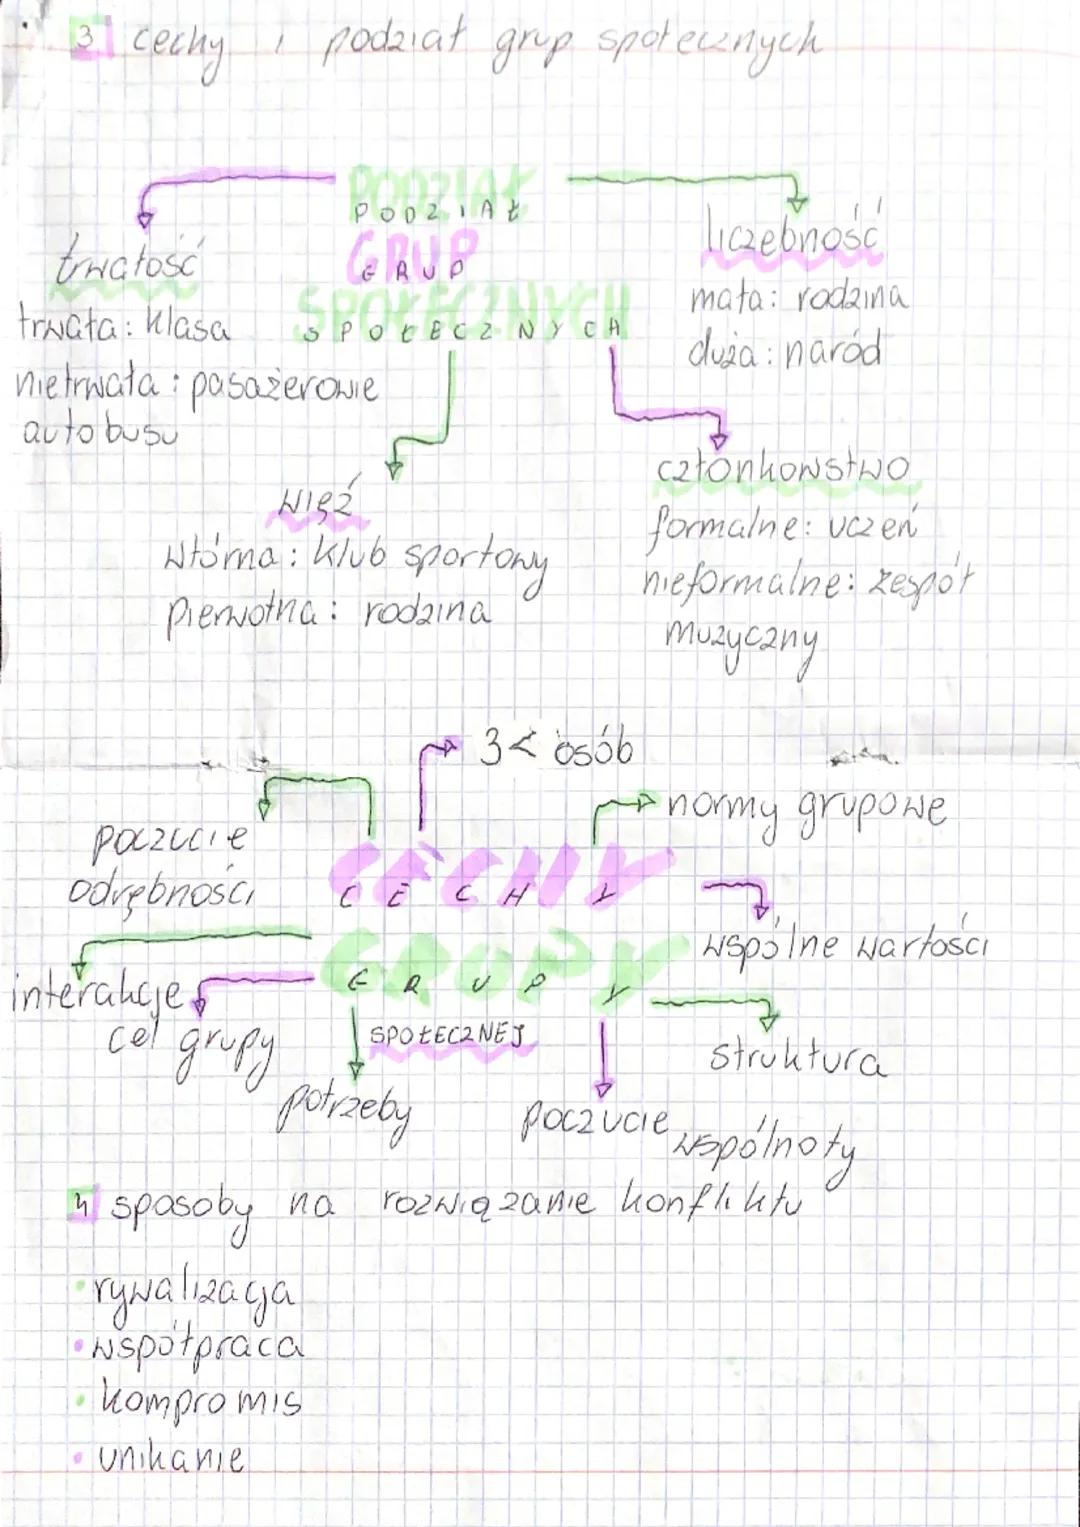 3 cechy i podział grup społecznych
PODZIAŁ
PODZIAŁ
GRUP
GRUP
SPOŁECZNYCH
SPOŁECZNYCH
trwałość
trwała: klasa
nietrwała: pasażerowie
autobusu
liczebność
mała: rodzina
duża: naród
więź
wtórna: klub sportowy
pierwotna: rodzina
członkowstwo
formalne: uczeń
nieformalne: zespół
muzyczny
3< osób
normy grupowe
poczucie
odrębności
CECHY
CECHY
wspólne wartości
GRUPY
GRUPY
interakcje
cel grupy
SPOŁECZNEJ
struktura
potrzeby
poczucie wspólnoty
4 sposoby na rozwiązanie konfliktu
• rywalizacja
• współpraca
• kompromis
• unikanie